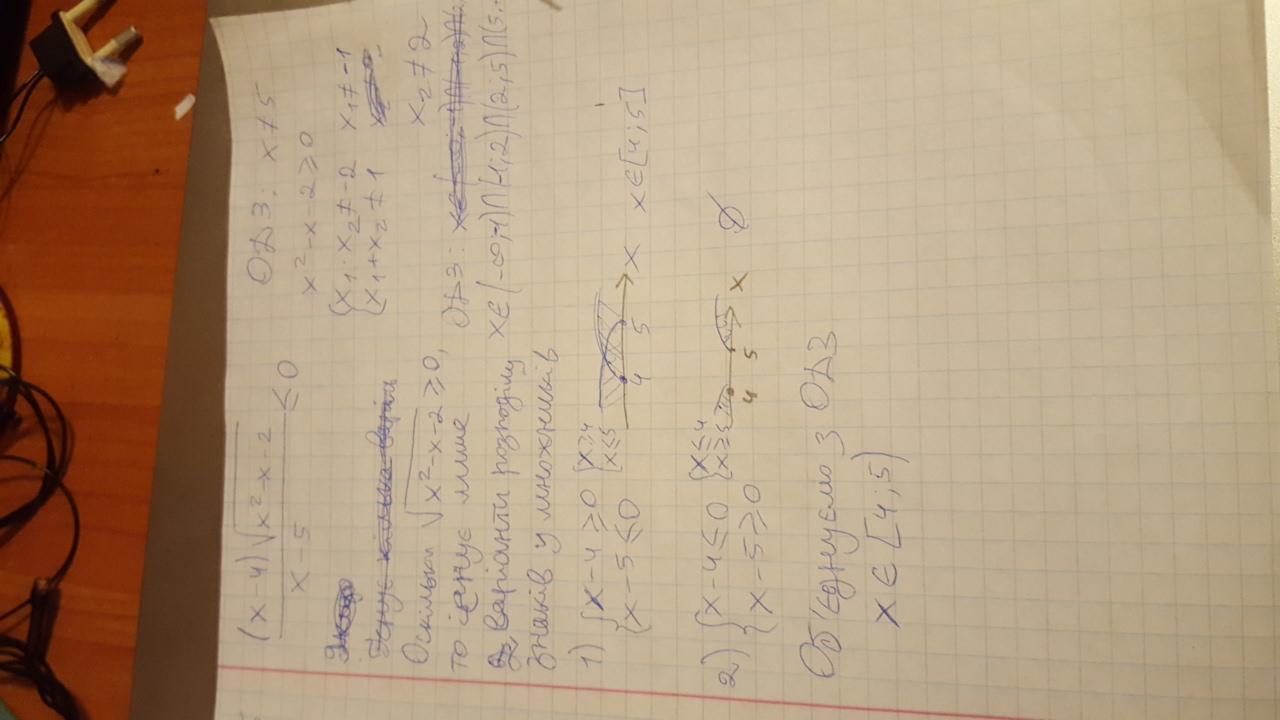 (x-4)√x²-x-2 / x-5 ≤ 0
ОДЗ: x≠5
x²-x-2≥0
{x₁·x₂≠-2 x₁≠-1
{x₁+x₂≠1
x₂≠2
Оскільки √x²-x-2 ≥0,
то існує лише
2 варіанти розподілу
знаків у множників
ОДЗ:
x∈(-∞;-1)∩(-1;2)∩(2;5)∩(5;
1) {x-4≥0 {x≥4
{x-5≤0 {x≤5
4 5 x x∈[4;5]
2) {x-4≤0 {x≤4
{x-5≥0 {x≥5
4 5 x ∅
Об'єднуємо з ОДЗ
x∈[4;5)